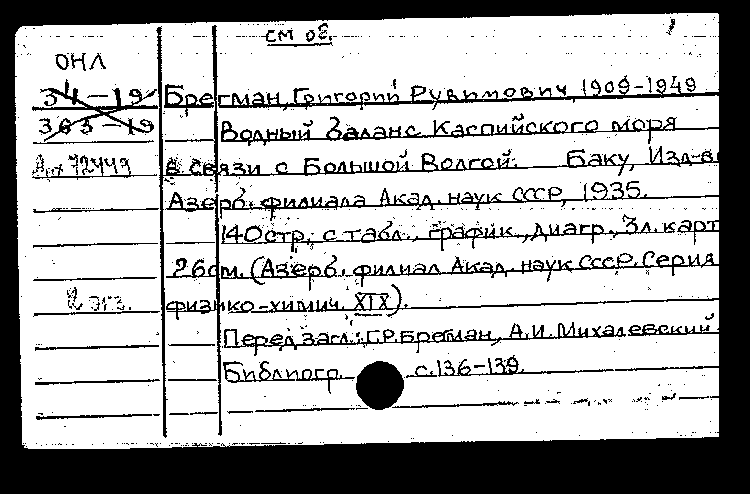 см об.
ОНЛ
34-19
Брегман, Григорий Рувимович, 1909-1949
363-19
Водный баланс Каспийского моря
Арх 72449
в связи с Большой Волгой. Баку, Изд-во
Азерб. филиала Акад. наук СССР, 1935.
140 стр., с табл., график., диагр., 3 л. карт
26 см. (Азерб. филиал Акад. наук СССР. Серия
2 экз.
физико-химич. XIX).
Перед загл.: Г.Р. Брегман, А.И. Михалевский.
Библиогр. с. 136-139.